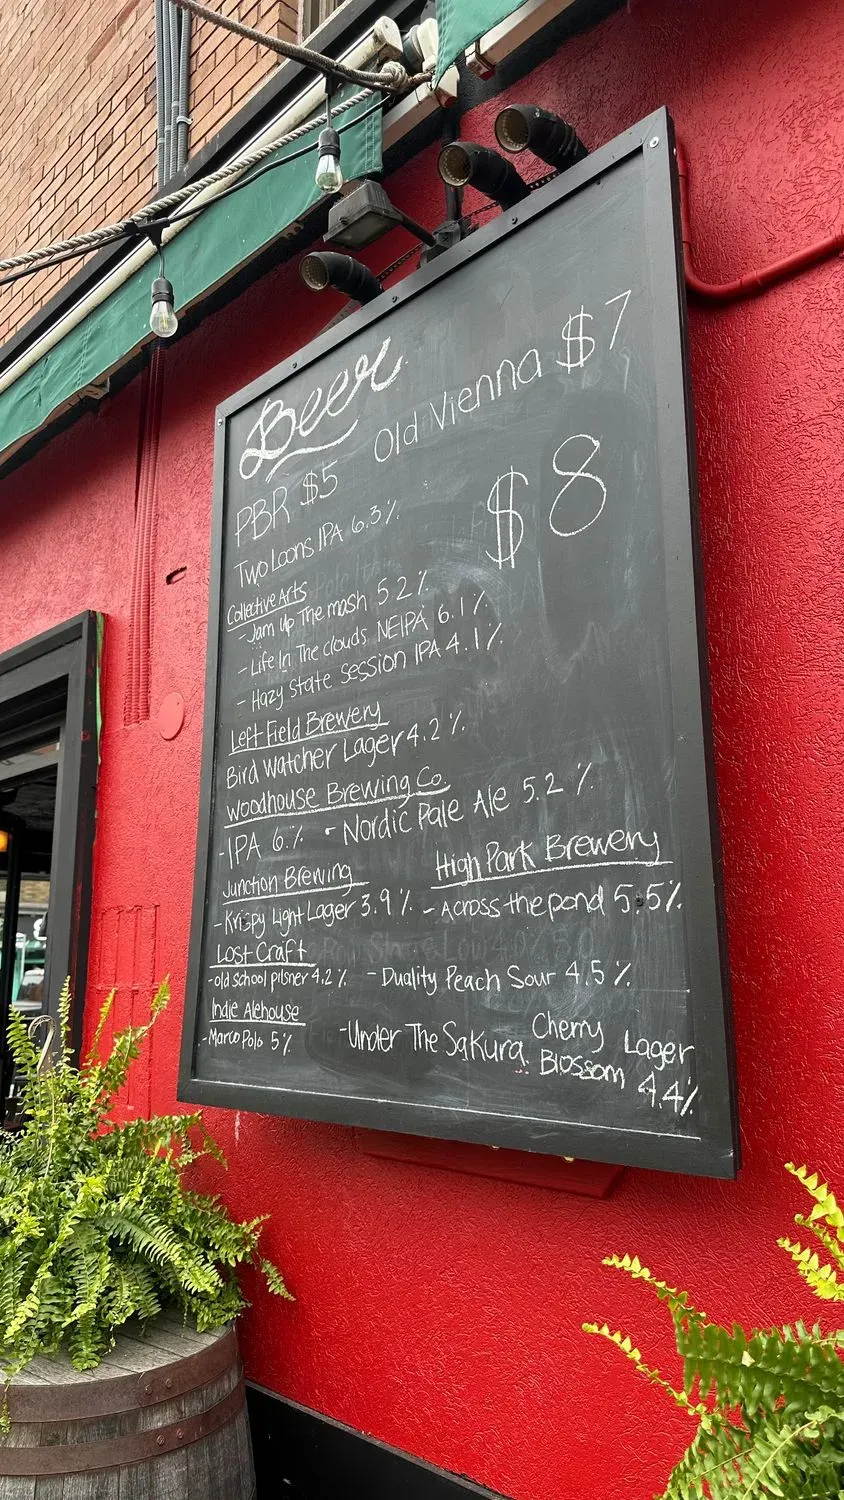 Beer
PBR $5 Old Vienna $7
Two Loons IPA 6.3% $8
Collective Arts
- Jam Up The mash 5.2%
- Life In The clouds NEIPA 6.1%
- Hazy State Session IPA 4.1%
Left Field Brewery
Bird Watcher Lager 4.2%
Woodhouse Brewing Co.
- IPA 6.% - Nordic Pale Ale 5.2%
Junction Brewing High Park Brewery
- Krispy Light Lager 3.9% - Across-the pond 5.5%
Lost Craft
- old school pilsner 4.2% - Duality Peach Sour 4.5%
Indie Alehouse
- Marco Polo 5% - Under The Sakura Cherry Lager
Blossom 4.4%